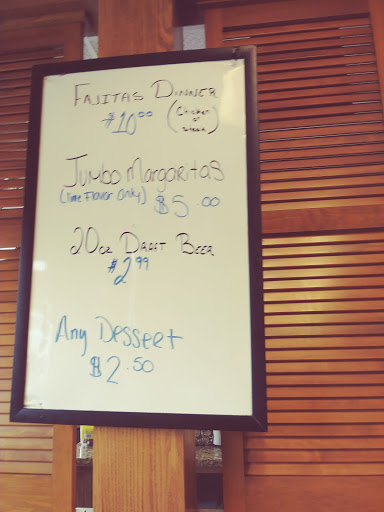 FAJITAS DINNER
$10.00 (Chicken or steak)
Jumbo Margaritas
(lime Flavor Only) $5.00
20oz DRAFT BEER
$2.99
Any Dessert
$2.50